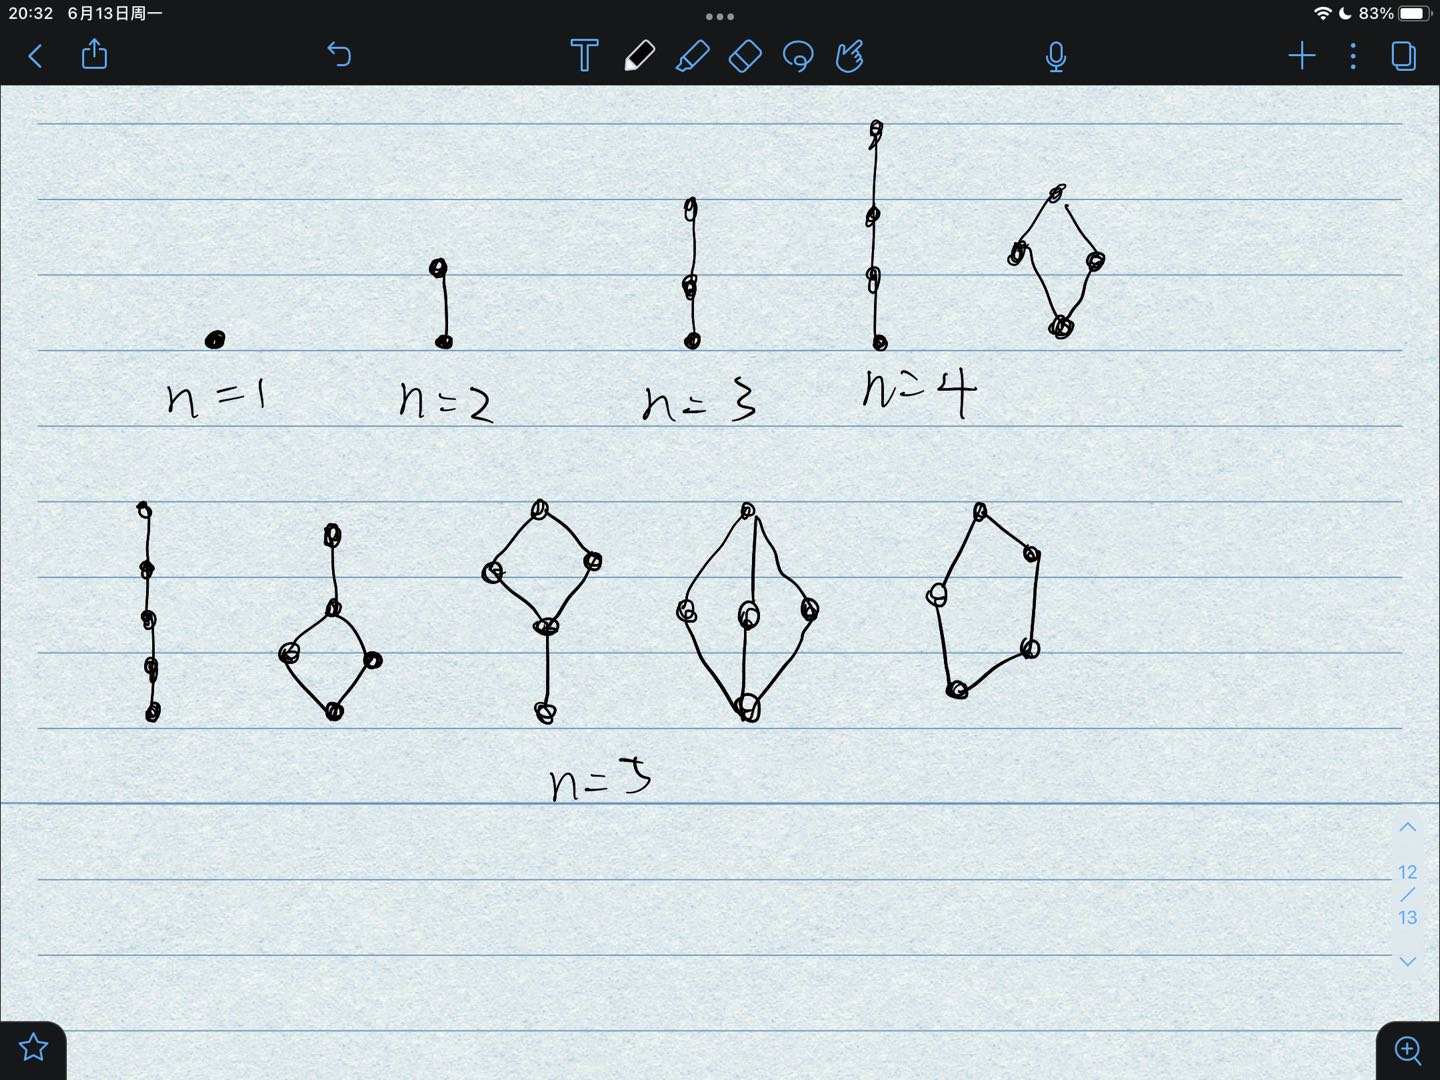 20:32 6月13日周一 83%
n=1 n=2 n=3 n=4
n=5
12
/
13